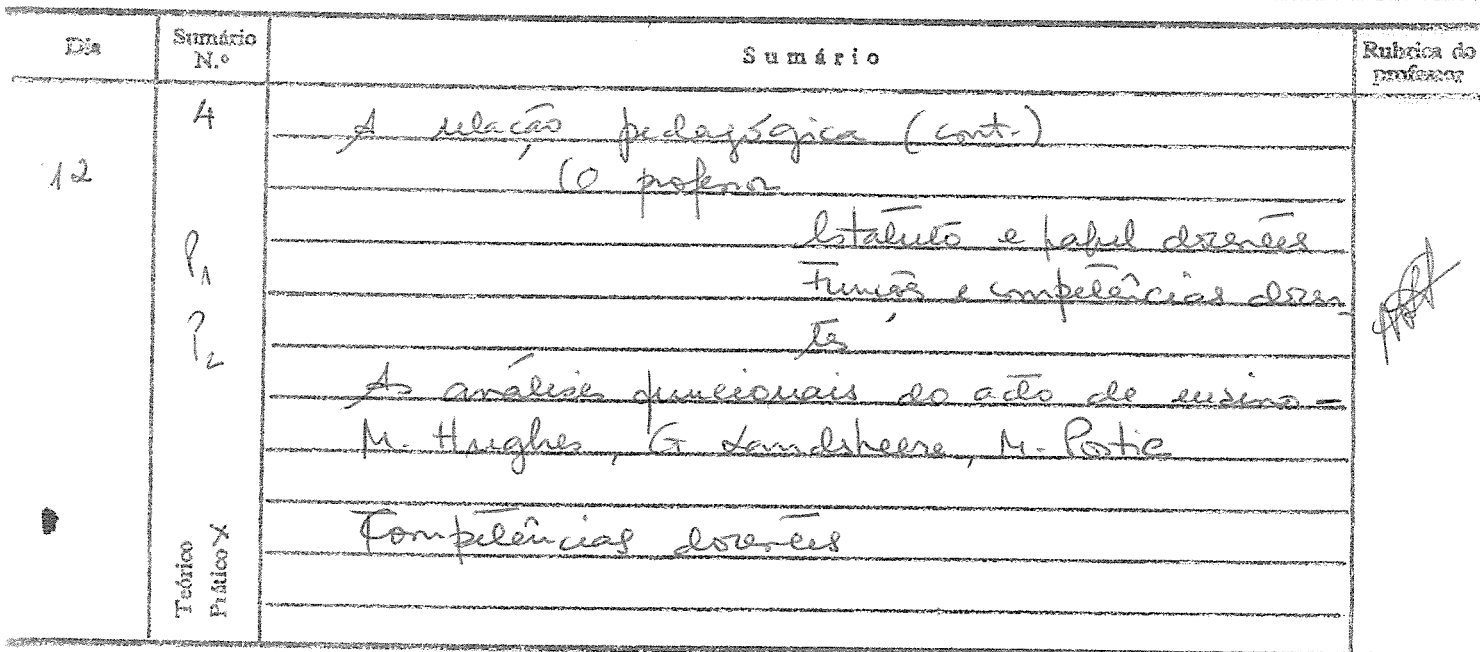 Dia Sumário N.º Sumário Rubrica do professor
4 A relação pedagógica (cont.)
12 (O professor
Estatuto e papel docentes
P1 Funções e competências docen-
P2 tes
As análises funcionais do acto de ensino -
M. Hughes, G Landsheere, M. Postic
Competências docentes
Teórico
Prático X